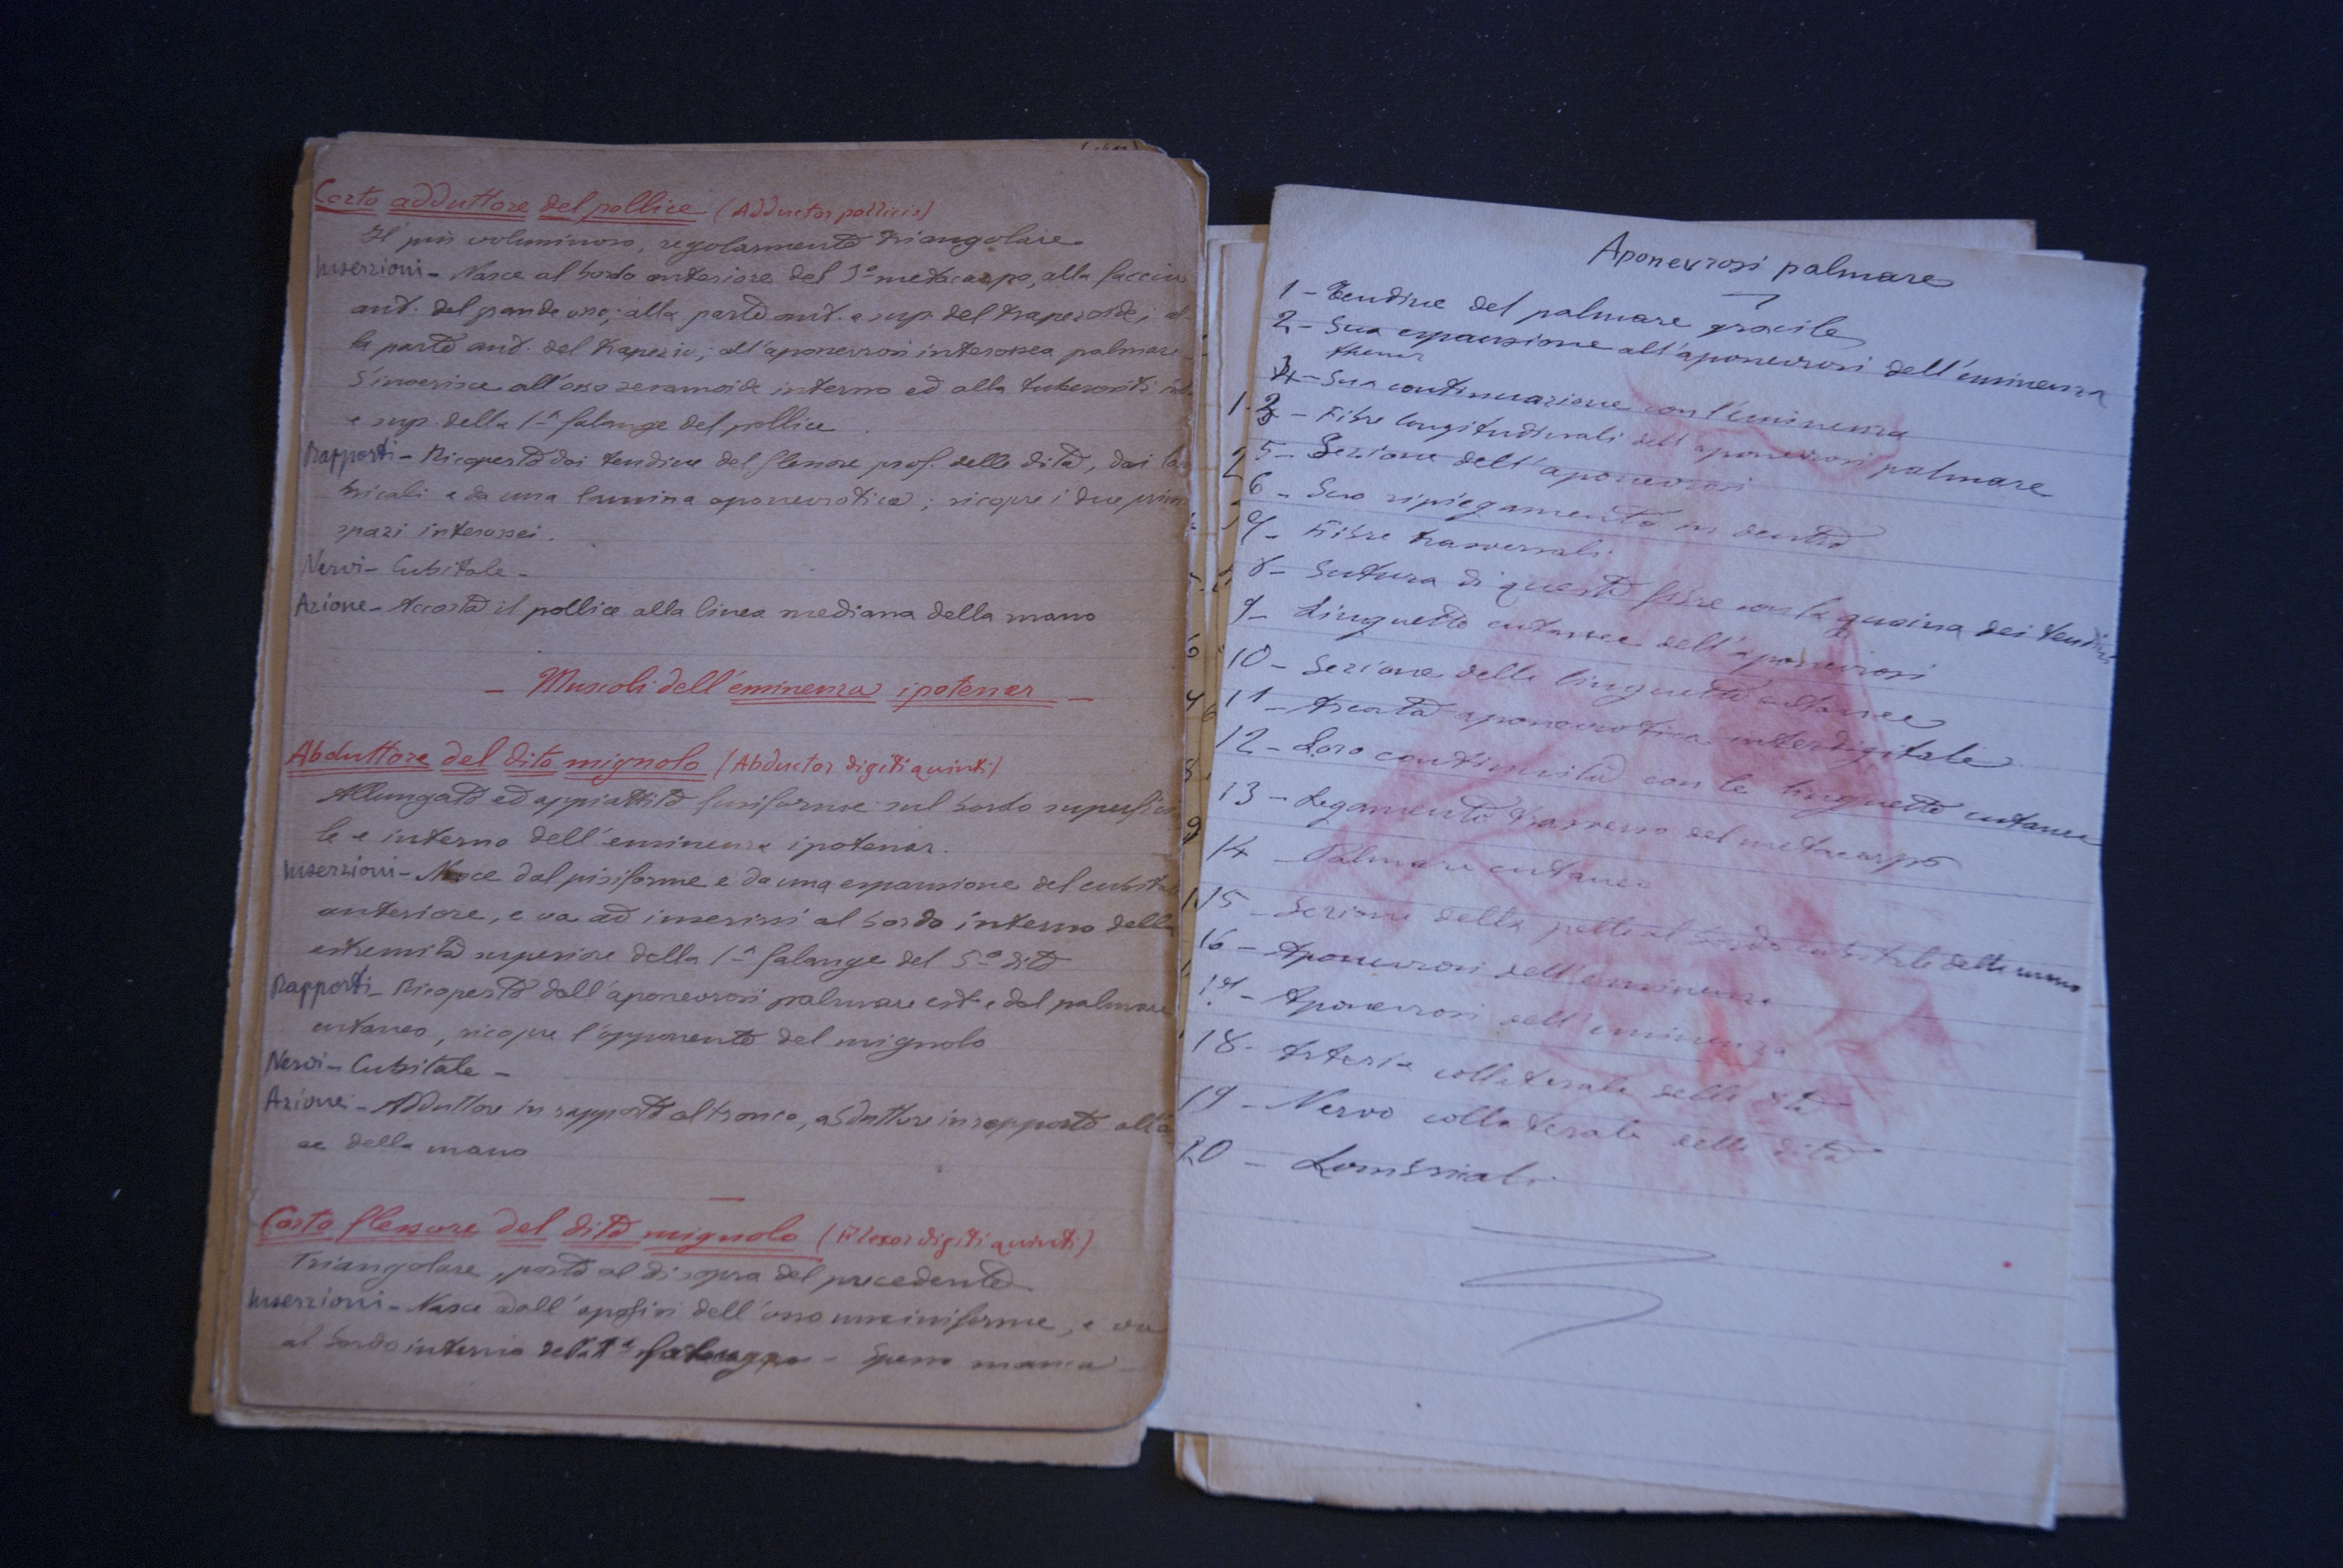 Corto adduttore del pollice (Adductor pollicis)
Il più voluminoso, regolarmente triangolare.
Inserzioni - Nasce al bordo anteriore del 3º metacarpo, alla faccia
ant. del grande osso; alla parte ant. e sup. del trapezoide; al-
la parte ant. del trapezio; all'aponevrosi interossea palmare -
S'inserisce all'osso sesamoide interno ed alla tuberosità
e sup. della 1ª falange del pollice.
Rapporti - Ricoperto dai tendine del flessore prof. delle dita, dai
bricali e da una lamina aponevrotica; ricopre i due primi
spazi interossei.
Nervi - Cubitale -
Azione - Accosta il pollice alla linea mediana della mano
- Muscoli dell'eminenza ipotenar -
Abduttore del dito mignolo (Abductor digiti quinti)
Allungato ed appiattito fusiforme sul bordo superficia
le e interno dell'eminenza ipotenar.
Inserzioni - Nasce dal pisiforme e da una espansione del cubitale
anteriore, e va ad inserirsi al bordo interno della
estremità superiore della 1ª falange del 5º dito
Rapporti - Ricoperto dall'aponevrosi palmare est. e dal palmare
cutaneo, ricopre l'opponente del mignolo
Nervi - Cubitale -
Azione - Adduttore in rapporto al tronco, abduttore in rapporto all'a
se della mano
Corto flessore del dito mignolo (Flexor digiti quinti)
Triangolare, posto al disopra del precedente
Inserzioni - Nasce dall'apofisi dell'osso unciniforme, e va
al bordo interno della 1ª falange - Spesso manca -
Aponevrosi palmare
1 - Tendine del palmare gracile
2 - Sua espansione all'aponevrosi dell'eminenza
thenar
Sua continuazione con l'eminenza
Fibre longitudinali dell'aponevrosi palmare
5 - Sezione dell'aponevrosi
6 - Suo ripiegamento in dentro
7 - Fibre trasversali
8 - Sutura di queste fibre con la guaina dei tendini
9 - Linguette cutanee dell'aponevrosi
10 - Sezione delle linguette cutanee
11 - Arcata aponevrotica interdigitale
12 - Loro continuità con le linguette cutanee
13 - Legamento trasverso del metacarpo
14 Palmare cutaneo
15 - Sezione della pelle al bordo cubitale della mano
16 - Aponevrosi dell'eminenza
17 - Aponevrosi dell'eminenza
18 - Arteria collaterale delle dita
19 - Nervo collaterale delle dita
20 - Lombricali